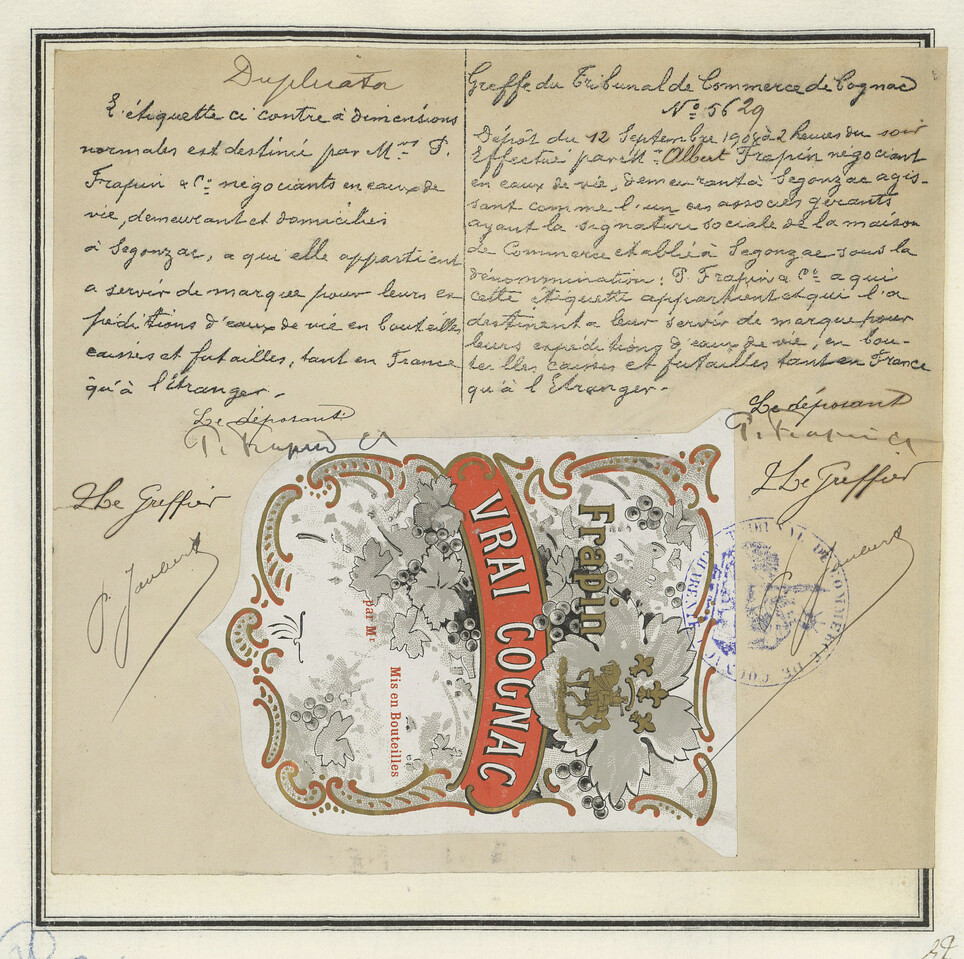 Duplicata
L'étiquette ci contre à dimensions
normales est destinée par Mrs P.
Frapin & Cie négociants en eaux de
vie, demeurant et domiciliés
à Segonzac, a qui elle appartient
a servir de marque pour leurs ex
péditions d'eaux de vie en bouteilles,
caisses et futailles, tant en France
qu'à l'étranger.
Le déposant
P. Frapin & Cie
Le Greffier
Greffe du Tribunal de Commerce de Cognac
No 5629
Dépôt du 12 Septembre 1908 à 2 heures du soir
Effectué par Mr Albert Frapin négociant
en eaux de vie, demeurant à Segonzac agis-
sant comme l'un des associés gérants
ayant la signature sociale de la maison
de Commerce etablie à Segonzac sous la
dénommination: P. Frapin & Cie a qui
cette étiquette appartient et qui l'a
destinent a leur servir de marque pour
leurs expéditions d'eaux de vie, en bou-
teilles caisses et futailles tant en France
qu'à l'Etranger.
Le déposant
P. Frapin & Cie
Le Greffier
Frapin
VRAI COGNAC
Mis en Bouteilles
par Mr
TRIBUNAL DE COMMERCE DE COGNAC
CHARENTE